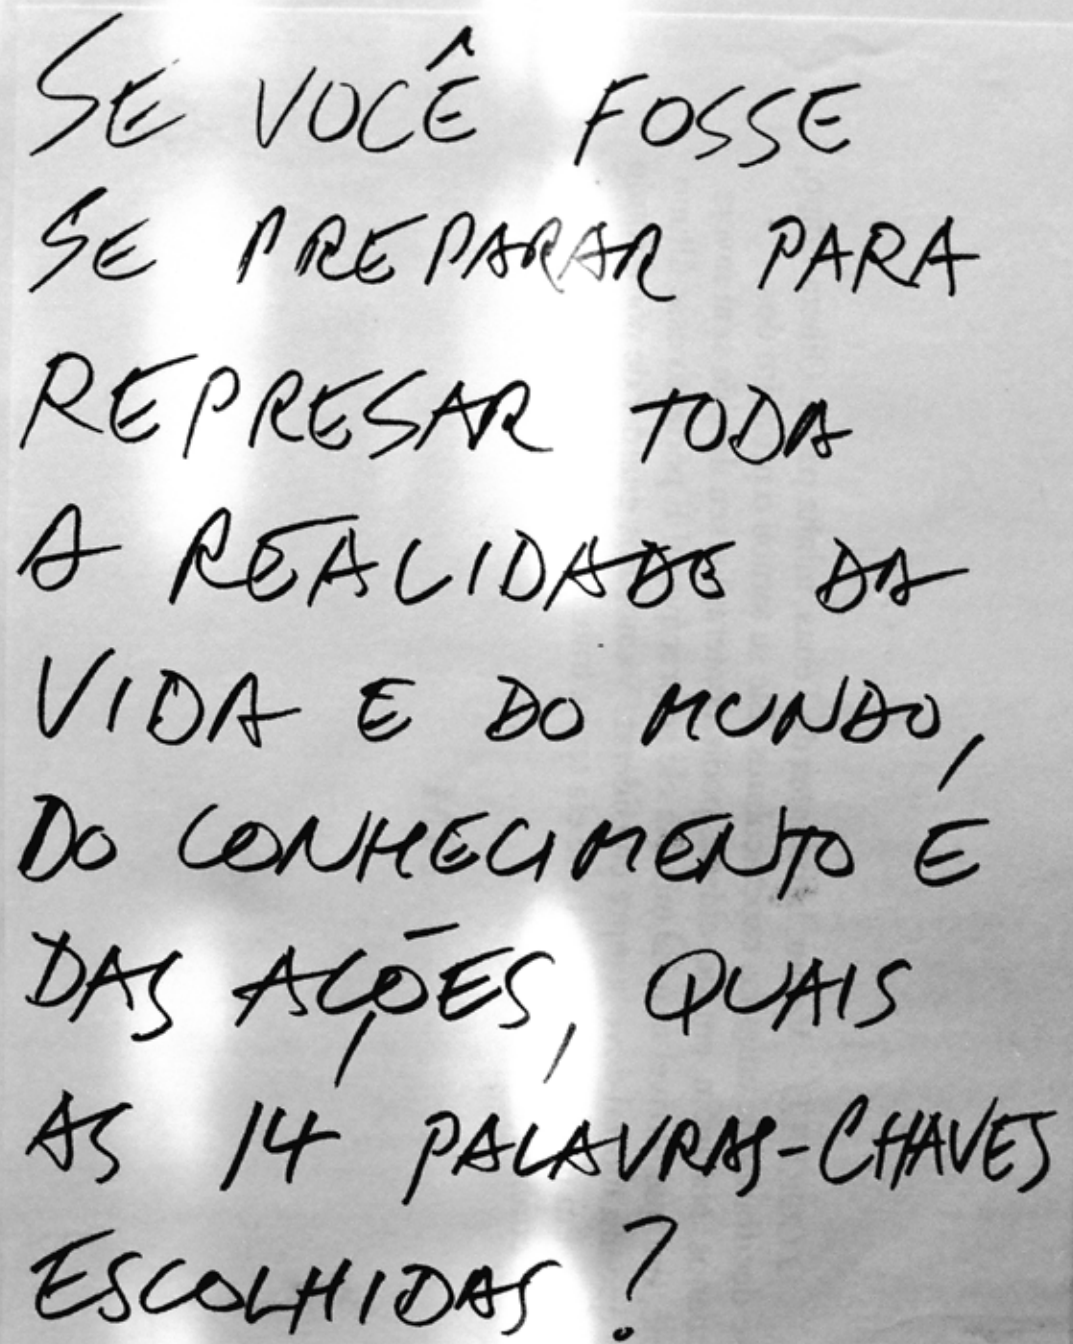 SE VOCÊ FOSSE
SE PREPARAR PARA
REPRESAR TODA
A REALIDADE DA
VIDA E DO MUNDO,
DO CONHECIMENTO E
DAS AÇÕES, QUAIS
AS 14 PALAVRAS-CHAVES
ESCOLHIDAS?